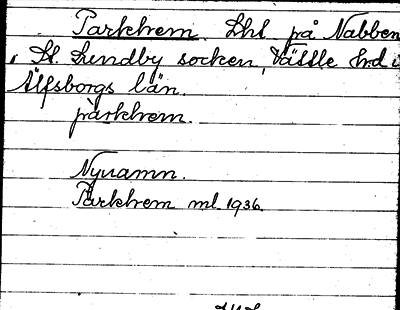 Parkhem. Lht på Nabben
i St. Lundby socken, Vättle hrd i
Älfsborgs län.
pàrkhem.
Nynamn.
Parkhem ml. 1936.